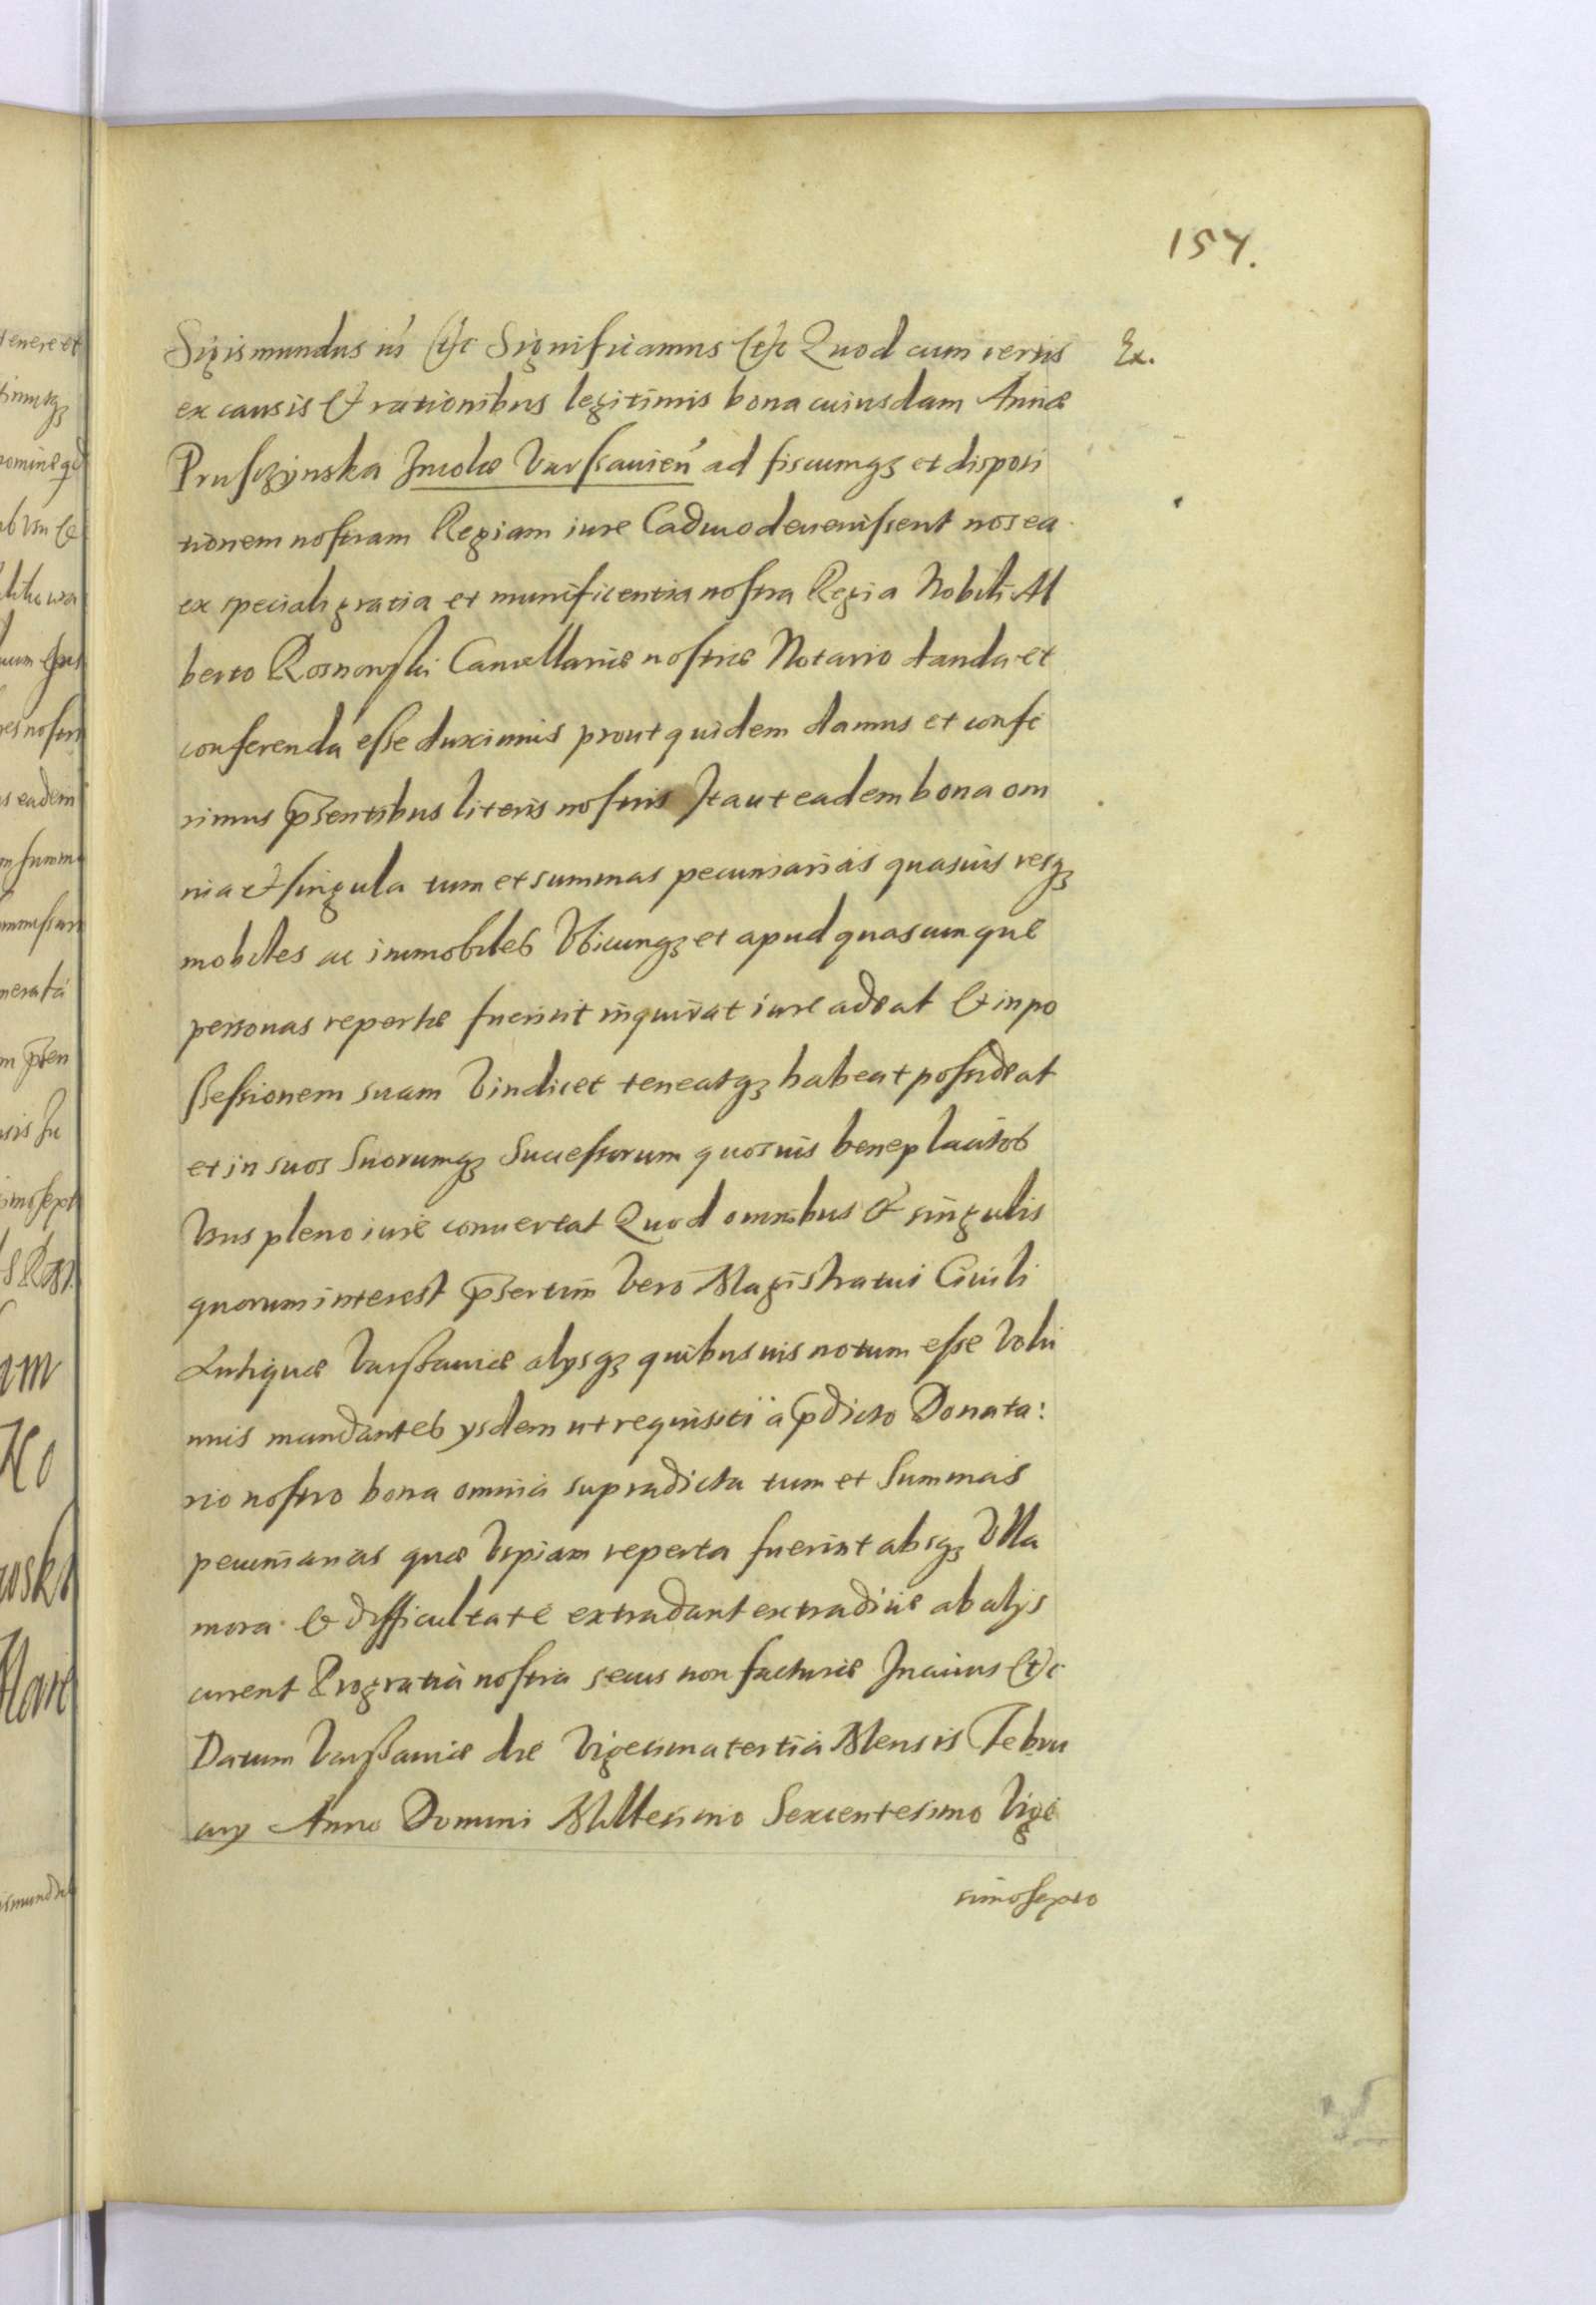 157.
Sigismundus iii &c Significamus &c Quod cum certis
Ex.
ex causis & rationibus legitimis bona cuiusdam Annæ
Prusczynska Incolæ Varsauien̄ ad fiscumqȝ et disposi
tionem nostram Regiam iure Caduco deuenissent nos ea
ex speciali gratia et munificentia nostra Regia Nobili Al
berto Rosnowski Cancellariæ nostræ Notario danda et
conferenda esse duximus prout quidem damus et confe
rimus p̄sentibus literis nostris Ita ut eadem bona om
nia & singula tum et summas pecuniarias quasuis resqȝ
mobiles ac immobiles Vbicunqȝ et apud quascunque
personas repertæ fuerint inquirat iure adeat & in po
ssessionem suam Vindicet teneatqȝ habeat possideat
et in suos Suorumqȝ Successorum quosuis beneplacitos
Vsus pleno iure conuertat Quod omnibus & singulis
quorum interest p̄sertim Vero Magistratui Ciuili
Antiquæ Varssauiæ alysqȝ quibusuis notum esse Volu
mus mandantes ysdem ut requisiti a p̄dicto Donata:
rio nostro bona omnia supradicta tum et Summas
pecuniarias quæ Vspiam reperta fuerint absqȝ Vlla
mora & difficultate extradant extradiue ab alys
curent Pro gratia nostra secus non facturæ In cuius &c
Datum Varssauiæ die Vigesima tertia Mensis Febru
ary Anno Domini Millesimo Sexcentesimo Vige
simosepto